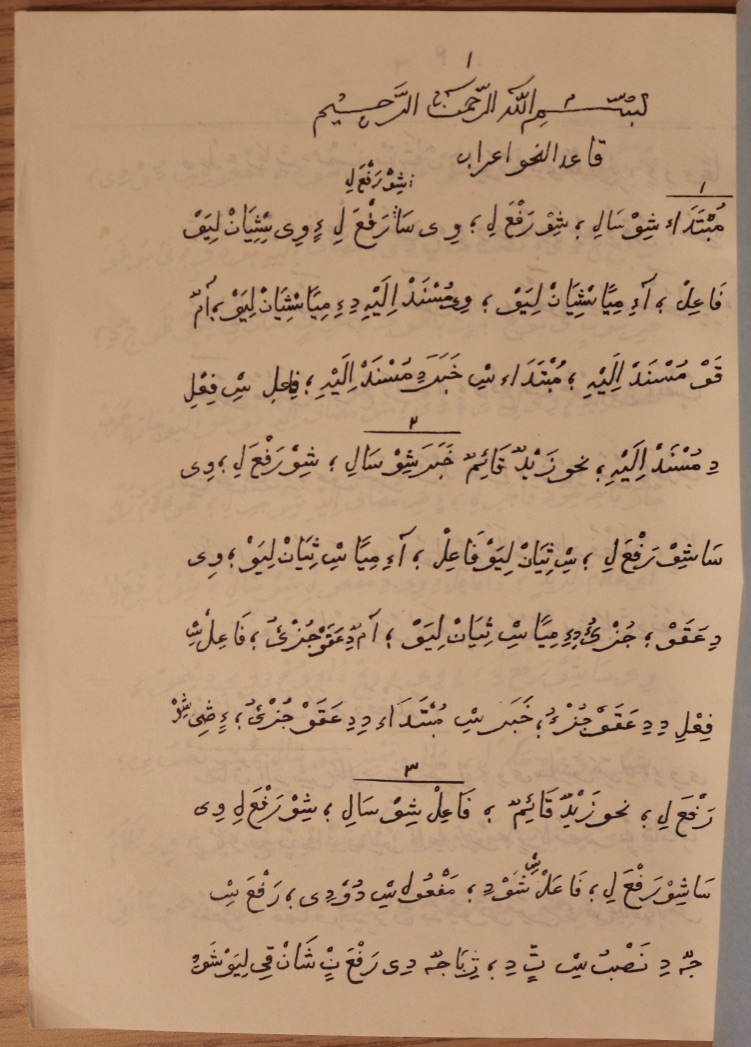 ١
بِسْمِ اللّٰهِ الرَّحْمٰنِ الرَّحِيمِ
قاعد النحو اعراب
شِوْ رَفْعَ لِ
١
مُبْتَدَاء شِوْ سَالِ ؛ شِوْ رَفْعَ لِ ؛ وِى سَا رَفْعَ لِ ءِ وِى سْ ثِيَانْ لِيَوْ
فَاعِلْ ؛ آءِ مِيًا سْ ثِيَانْ لِيَوْ ؛ وِى مُسْنَدْ اِلَيْهِ دِءِ مِيًا سْ ثِيَانْ لِيَوْ ؛ اَمْ
قَوْ مُسْنَدْ اِلَيْهِ ؛ مُبْتَدَاء سْ خَبَرَ دِ مُسْنَدْ اِلَيْهِ ؛ فَاعِلِ سْ فِعْلِ
٢
دِ مُسْنَدْ اِلَيْهِ ؛ نحو زَيْدٌ قَائِمٌ خَبَرَ شِوْ سَالِ ؛ شِوْ رَفْعَ لِ ؛ وِى
سَا شِوْ رَفْعَ لِ ؛ سْ ثِيَانْ لِيَوْ فَاعِلْ ؛ آءِ مِيًا سْ ثِيَانْ لِيَوْ ؛ وِى
دِ عَقَوْ ؛ جُزْئُ دِءِ مِيًا سْ ثِيَانْ لِيَوْ ؛ اَمْ دِ عَقَوْ جُزْئُ ؛ فَاعِلْ سْ
فِعْلِ دِ دِ عَقَوْ جُزْءُ ؛ خَبَرَ سْ مُبْتَدَاء دِ دِ عَقَوْ جُزْئُ ؛ ءِ ضِى شِوْ
٣
رَفْعَ لِ ؛ نحو زَيْدٌ قَائِمٌ ؛ فَاعِلْ شِوْ سَالِ ؛ شِوْ رَفْعَ لِ وِى
سَا شِوْ رَفْعَ لِ ؛ فَاعَلْ سْ شَوْدِ ؛ مَفْعُولِ سْ دُوْدِى ؛ رَفْعَ سْ
جْه دِ نَصْبْ سْ دِ ؛ جْه دِى رَفْعَ شَانْ قِى لِيَوْ